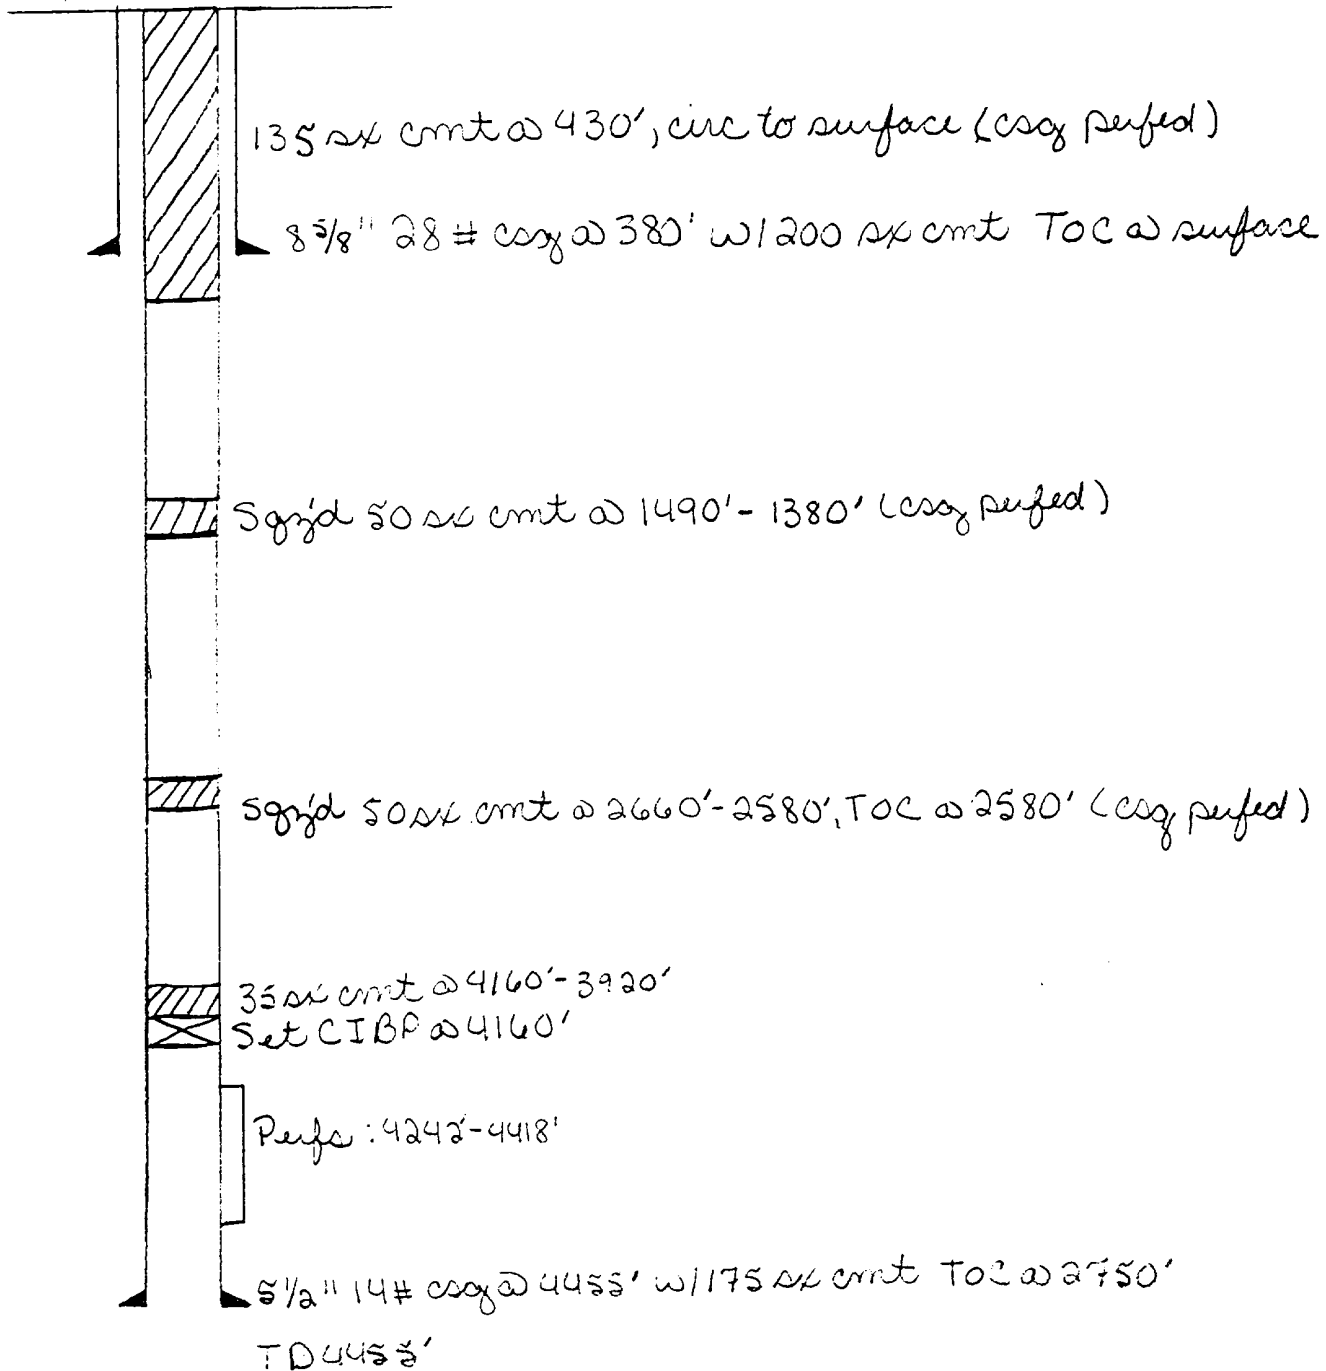 135 sx cmt @ 430', circ to surface (csg perfed)
8 5/8" 28# csg @ 380' w/200 sx cmt TOC @ surface
Sqz'd 50 sx cmt @ 1490'-1380' (csg perfed)
Sqz'd 50 sx cmt @ 2660'-2580', TOC @ 2580' (csg perfed)
35 sx cmt @ 4160'-3920'
Set CIBP @ 4160'
Perfs: 4242'-4418'
5 1/2" 14# csg @ 4455' w/175 sx cmt TOC @ 2750'
TD 4455'